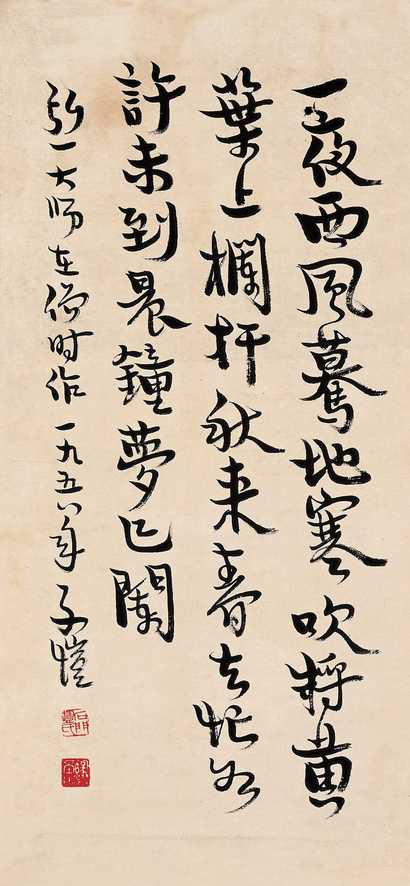 一夜西風驀地寒吹將黄
葉上欄杆秋来春去忙如
許未到晨鐘夢已闌
弘一大师在俗时作 一九五 年 子愷